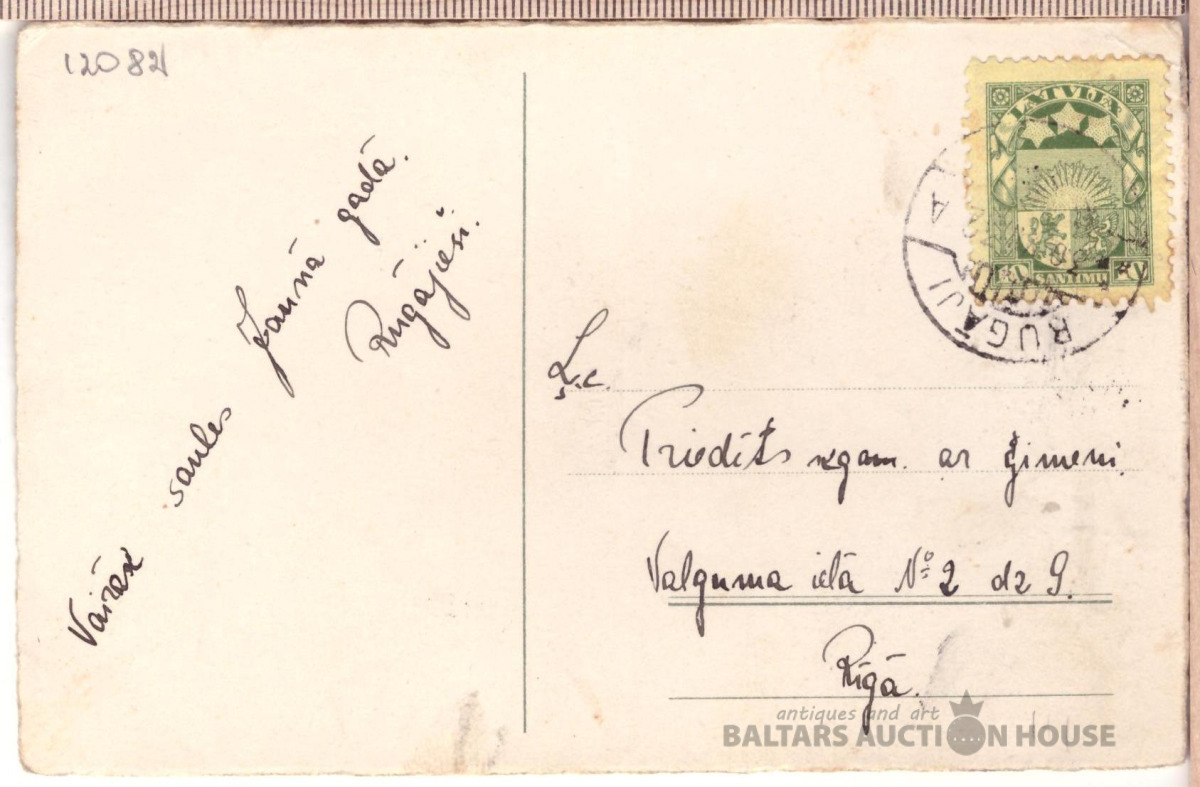 12082
Vairāk saules Jaunā gadā.
Rugājieši.
LATVIJA
SANTIMU
RUGĀJI
Ļ.c.
Priedīts kgam. ar ģimeni.
Valguma ielā No 2 dz 9.
Rīgā.
antiques and art
BALTARS AUCTION HOUSE